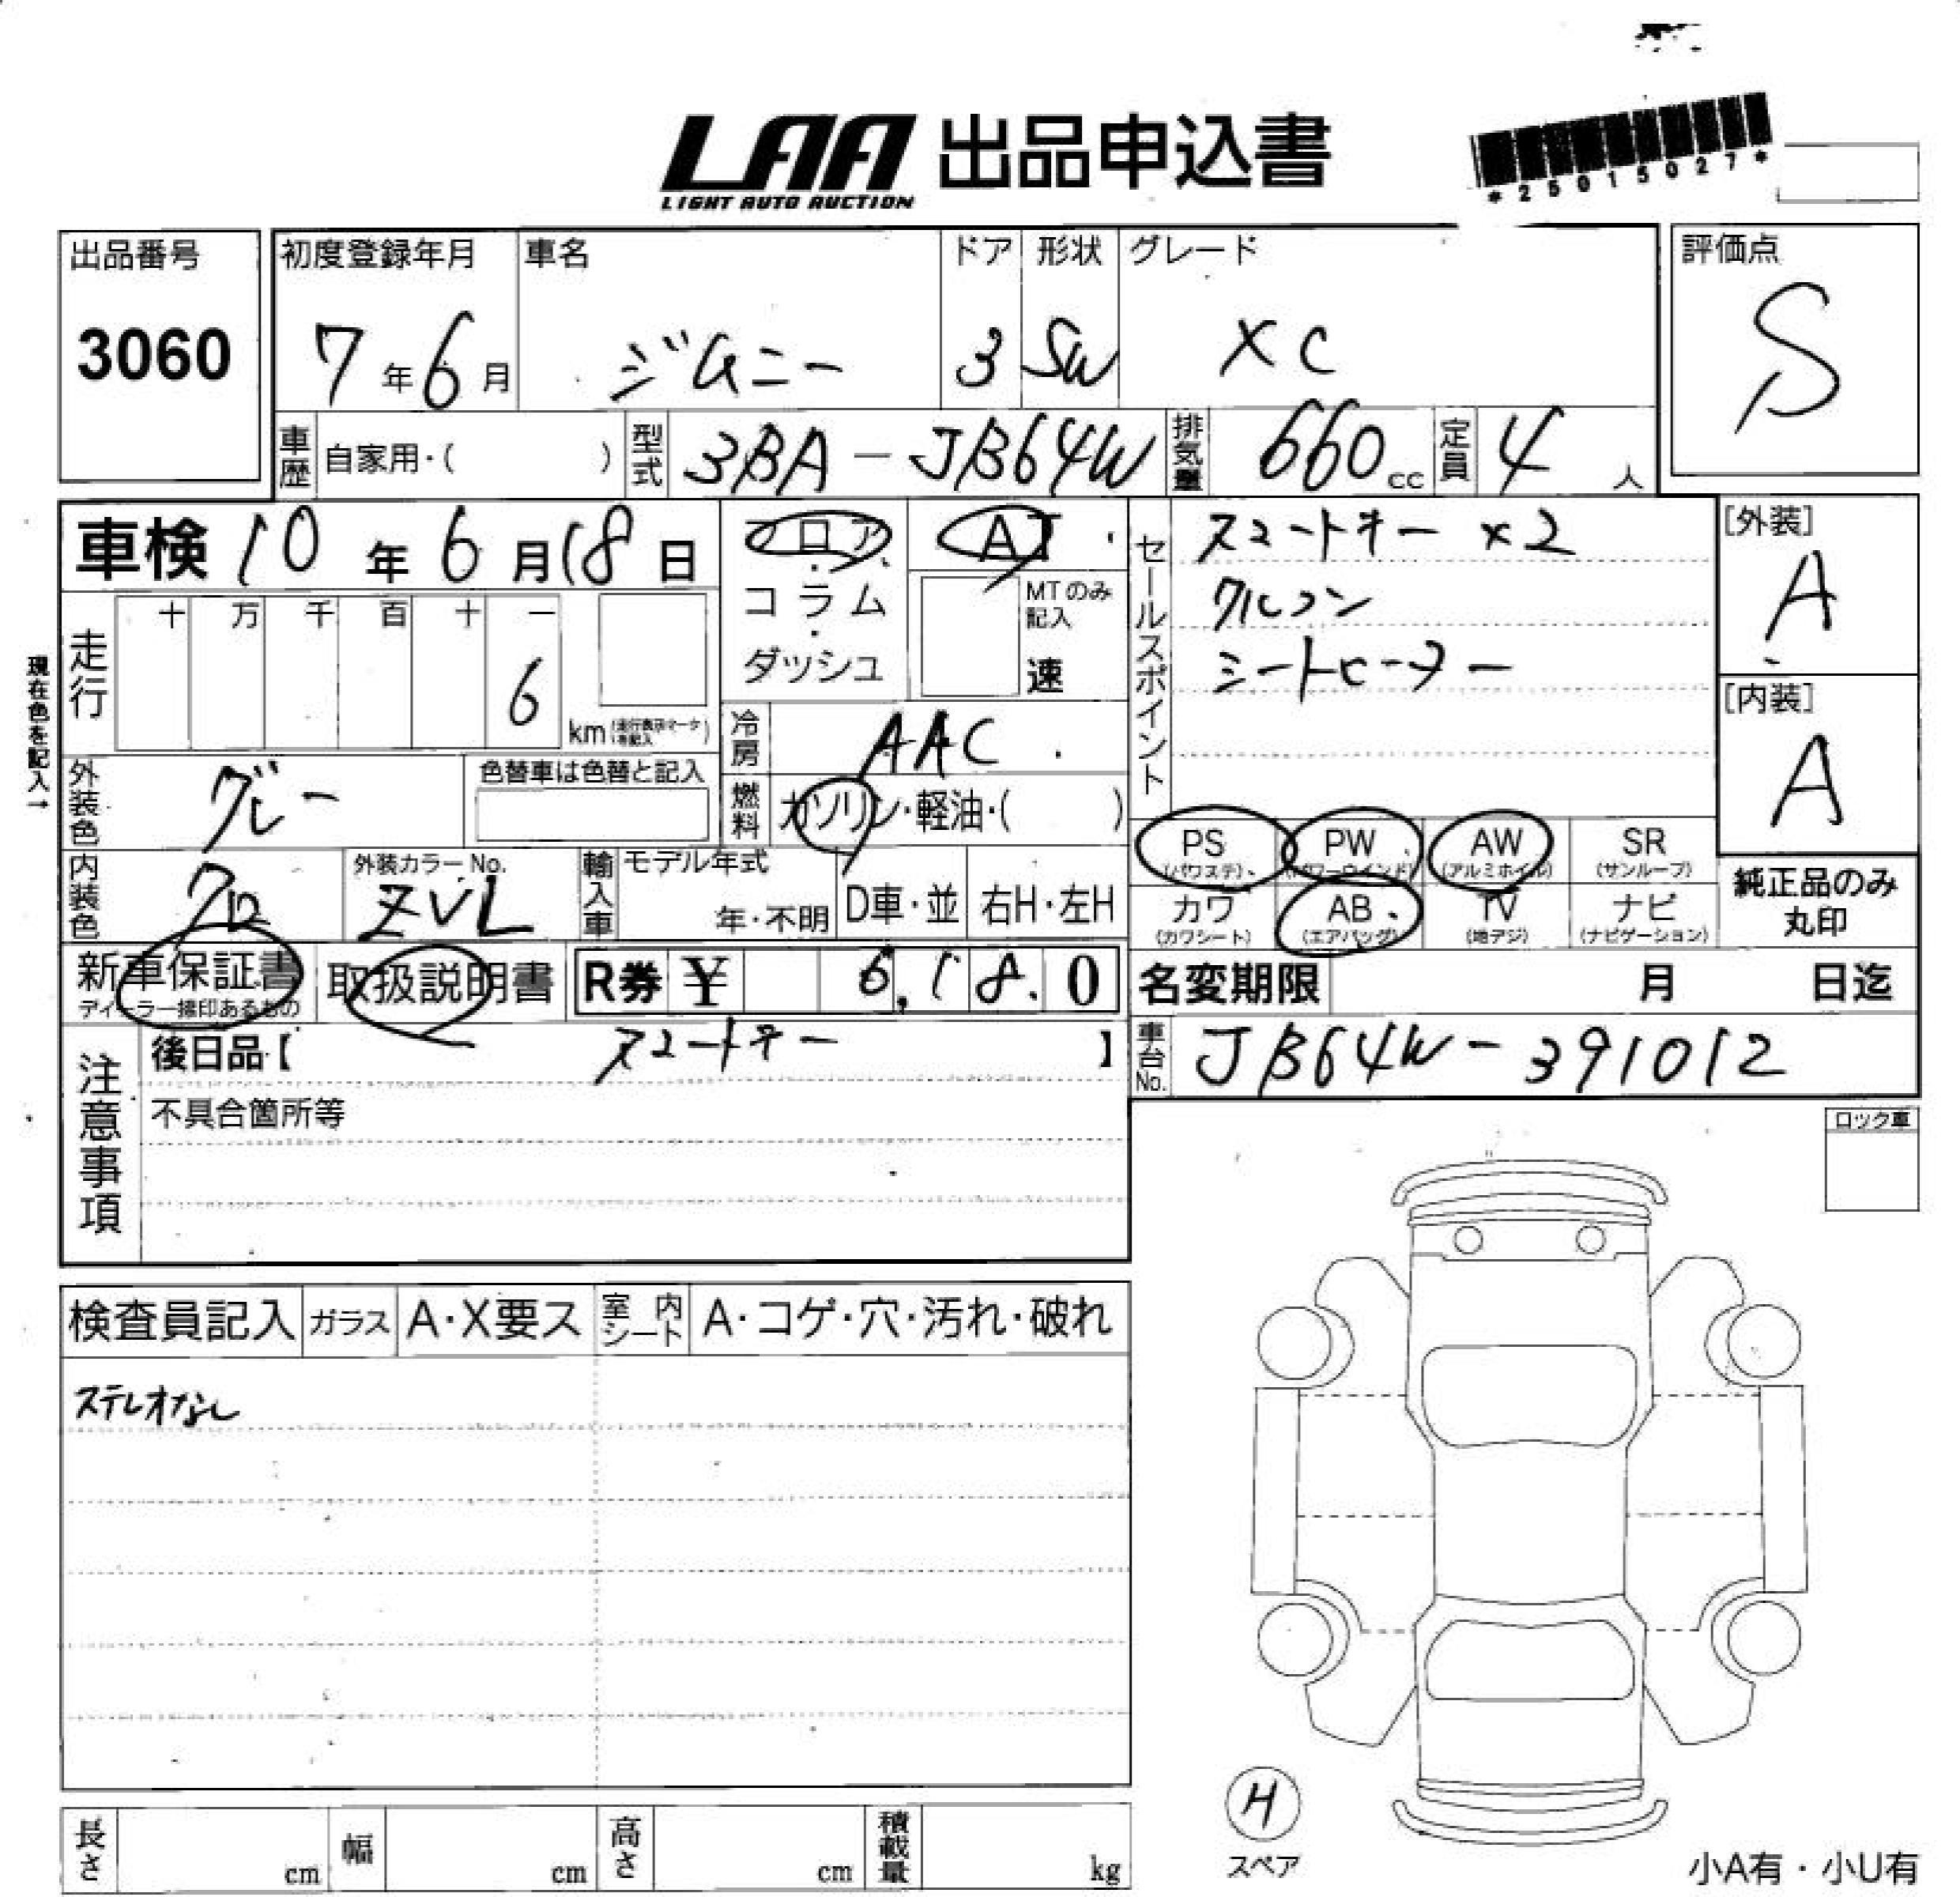 LAA 出品申込書
LIGHT AUTO AUCTION
*25015027*
出品番号
3060
初度登録年月
7年6月
車名
ジムニー
ドア
3
形状
SW
グレード
XC
評価点
S
車歴 自家用・( )
型式 3BA-JB64W
排気量 660cc
定員 4人
車検 10年6月18日
現在色を記入→
走行
十 万 千 百 十 一
6
km
フロア・コラム・ダッシュ
AT
MTのみ記入
速
冷房 AAC
燃料 ガソリン・軽油・( )
セールスポイント
スマートキー ×2
クルコン
シートヒーター
[外装]
A
[内装]
A
外装色 グレー
色替車は色替と記入
内装色 クロ
外装カラーNo.
ZVL
輸入車
モデル年式
年・不明
D車・並
右H・左H
PS (パワステ)
PW (パワーウインド)
AW (アルミホイル)
SR (サンルーフ)
カワ (カワシート)
AB (エアバッグ)
TV (地デジ)
ナビ (ナビゲーション)
純正品のみ
丸印
新車保証書
ディーラー捺印あるもの
取扱説明書
R券 ¥ 6,180
名変期限 月 日迄
注意事項
後日品【 スマートキー 】
不具合箇所等
車台No. JB64W-391012
ロック車
検査員記入
ガラス A・X要ス
室内シート A・コゲ・穴・汚れ・破れ
ステレオなし
H
スペア
小A有・小U有
長さ cm
幅 cm
高さ cm
積載量 kg